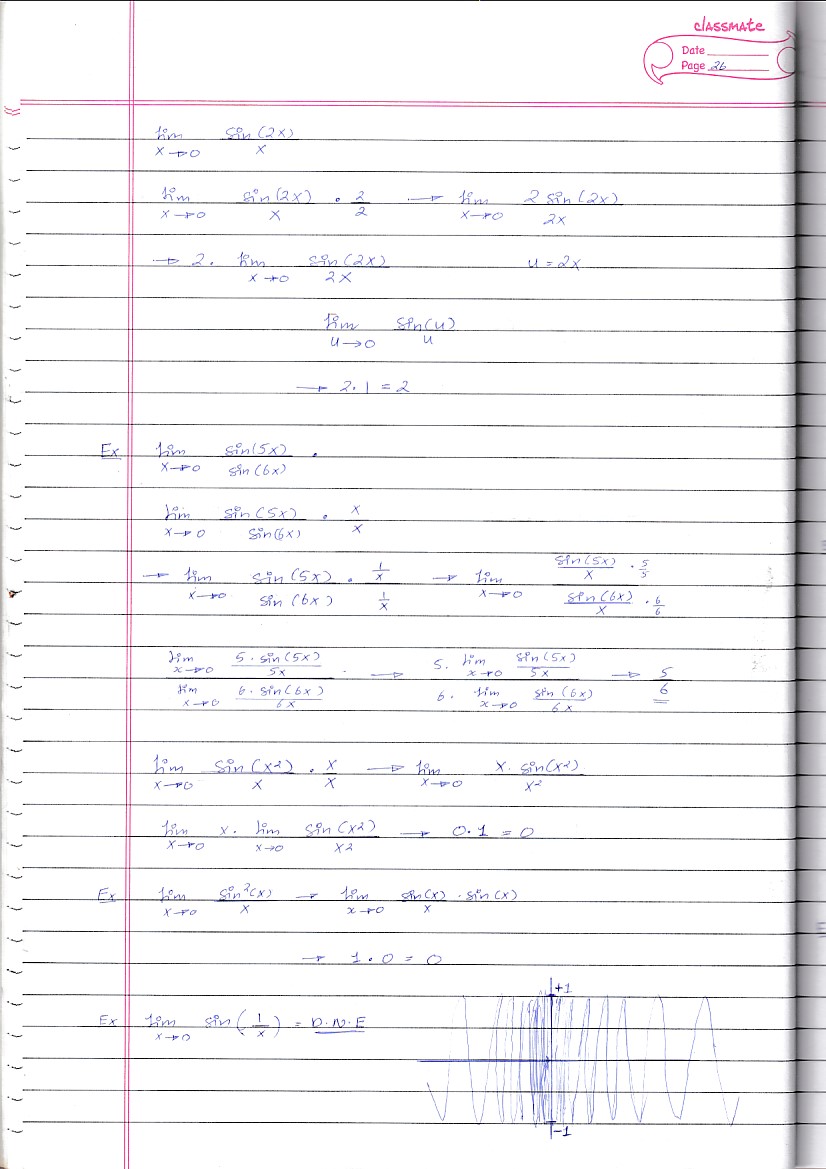 classmate
Date
Page 26
lim x→0 sin(2x)/x
lim x→0 sin(2x)/x · 2/2 → lim x→0 2 sin(2x)/2x
→ 2 · lim x→0 sin(2x)/2x u = 2x
lim u→0 sin(u)/u
→ 2·1 = 2
Ex lim x→0 sin(5x)/sin(6x) .
lim x→0 sin(5x)/sin(6x) · x/x
→ lim x→0 sin(5x)/sin(6x) · (1/x)/(1/x) → lim x→0 (sin(5x)/x · 5/5)/(sin(6x)/x · 6/6)
(lim x→0 5·sin(5x)/5x)/(lim x→0 6·sin(6x)/6x) → (5. lim x→0 sin(5x)/5x)/(6. lim x→0 sin(6x)/6x) → 5/6
lim x→0 sin(x²)/x · x/x → lim x→0 x·sin(x²)/x²
lim x→0 x · lim x→0 sin(x²)/x² → 0·1 = 0
Ex lim x→0 sin²(x)/x → lim x→0 sin(x)/x · sin(x)
→ 1·0 = 0
+1
Ex lim x→0 sin(1/x) = D.N.E
-1